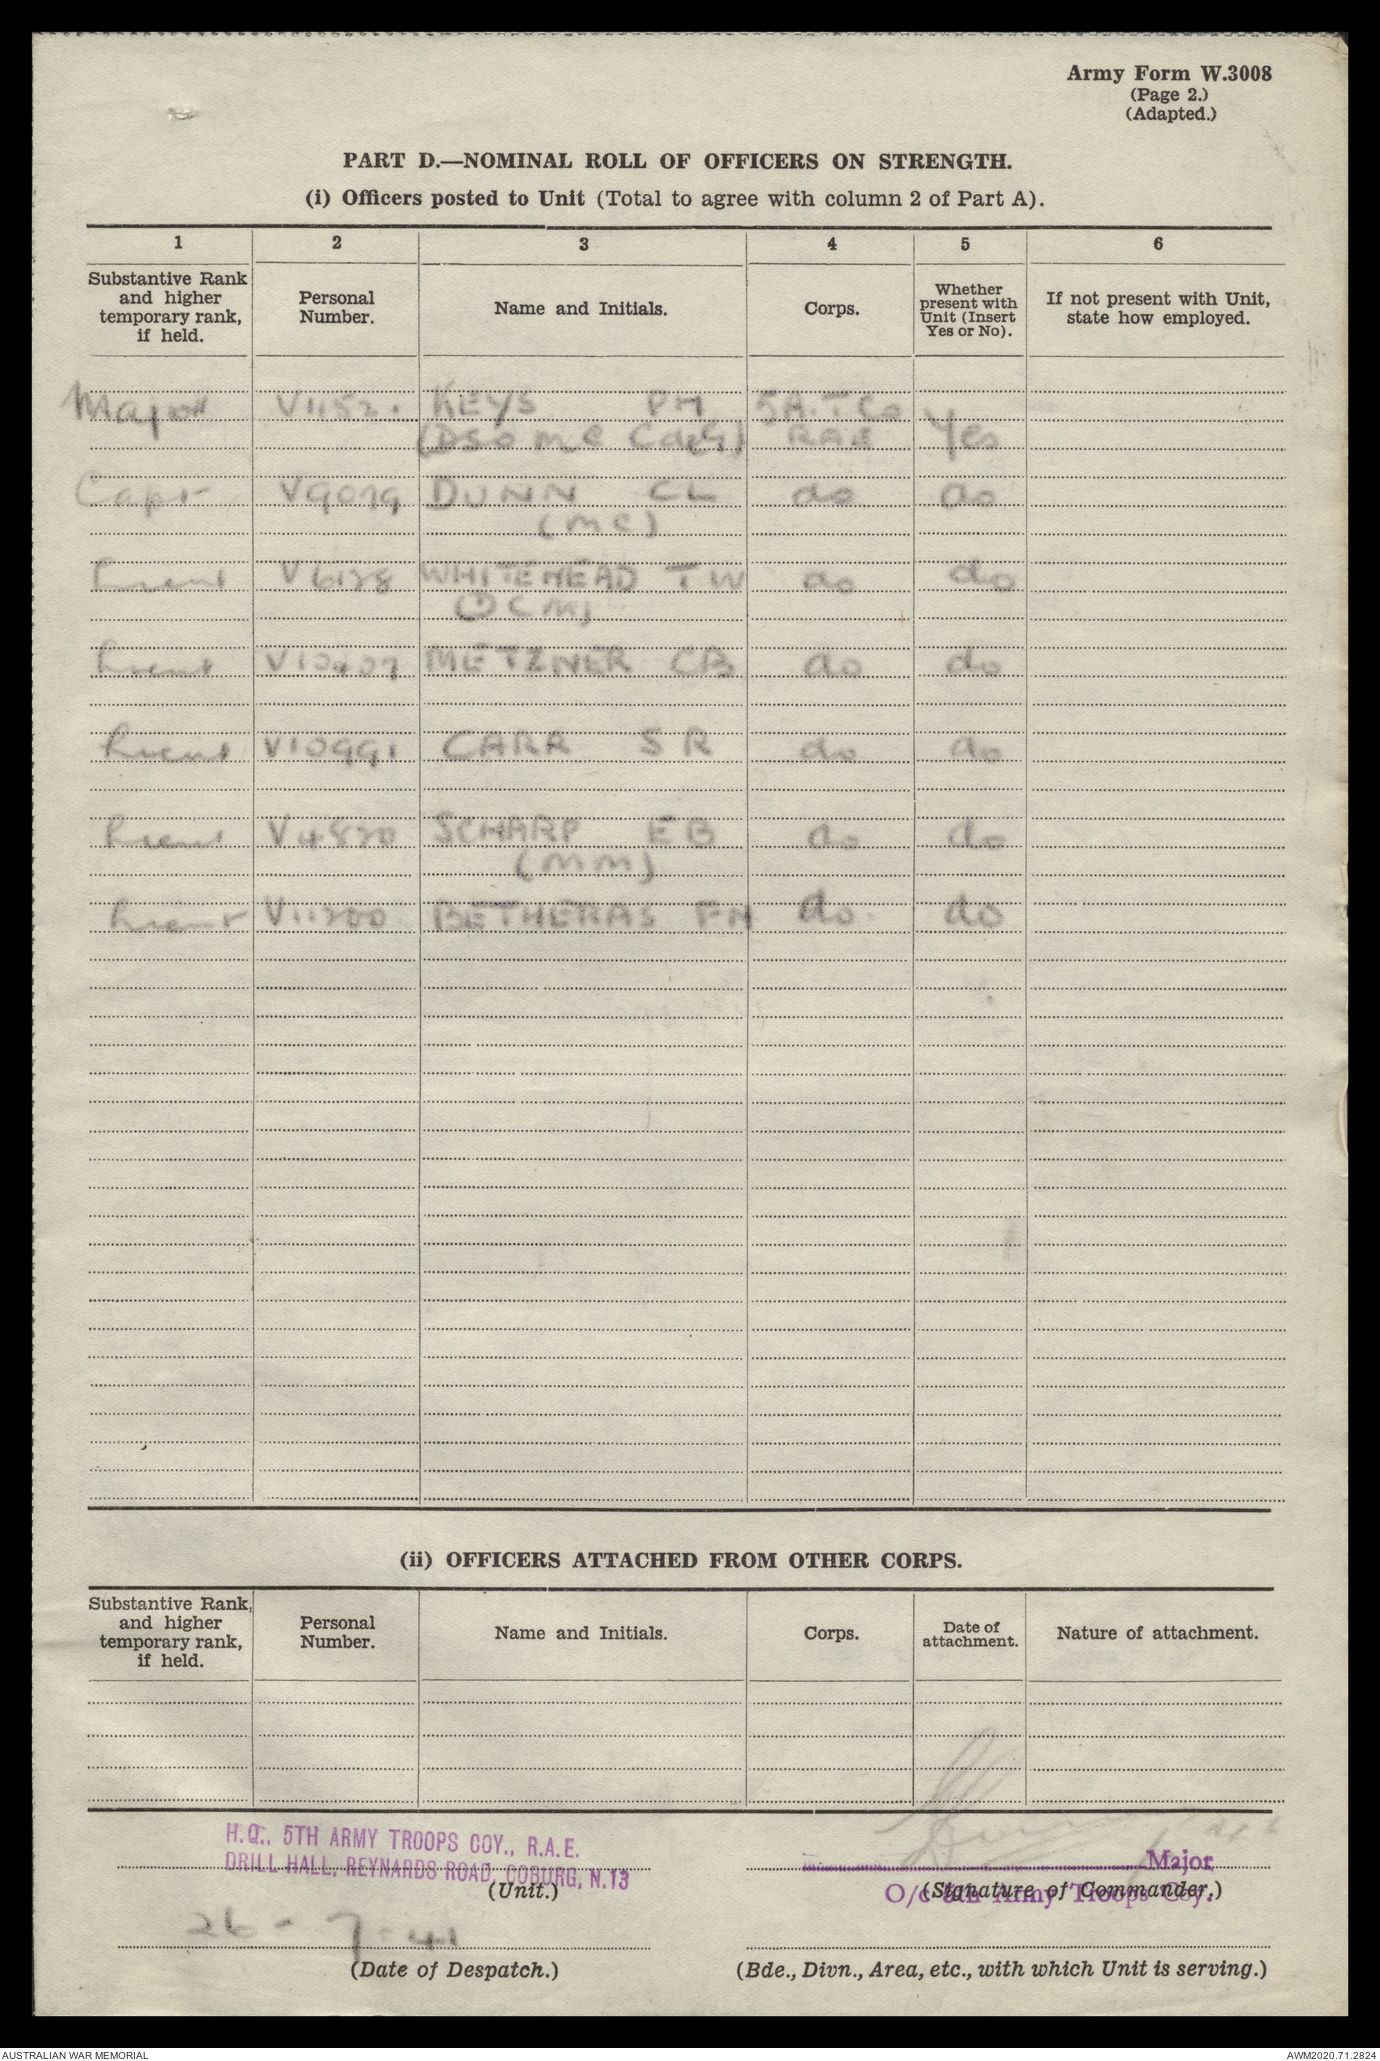 Army Form W.3008
(Page 2.)
(Adapted.)
PART D.—NOMINAL ROLL OF OFFICERS ON STRENGTH.
(i) Officers posted to Unit (Total to agree with column 2 of Part A).
1 2 3 4 5 6
Substantive Rank and higher temporary rank, if held. Personal Number. Name and Initials. Corps. Whether present with Unit (Insert Yes or No). If not present with Unit, state how employed.
Major V1152. KEYS PM 5A.T Co
(DSO MC CdeG) RAE Yes
Capt V9079 DUNN CL do do
(MC)
Lieut V6128 WHITEHEAD TW do do
(DCM)
Lieut V10407 METZNER CB do do
Lieut V10991 CARR SR do do
Lieut V4820 SCHARP EB do do
(MM)
Lieut V11200 BETHERAS FN do do
(ii) OFFICERS ATTACHED FROM OTHER CORPS.
Substantive Rank, and higher temporary rank, if held. Personal Number. Name and Initials. Corps. Date of attachment. Nature of attachment.
H.Q., 5TH ARMY TROOPS COY., R.A.E.
DRILL HALL, REYNARDS ROAD, COBURG, N.13
Major
(Unit.)
O/c 5th Army Troops Coy.
(Signature of Commander.)
26 - 7 - 41
(Date of Despatch.)
(Bde., Divn., Area, etc., with which Unit is serving.)
AUSTRALIAN WAR MEMORIAL
AWM2020.71.2824